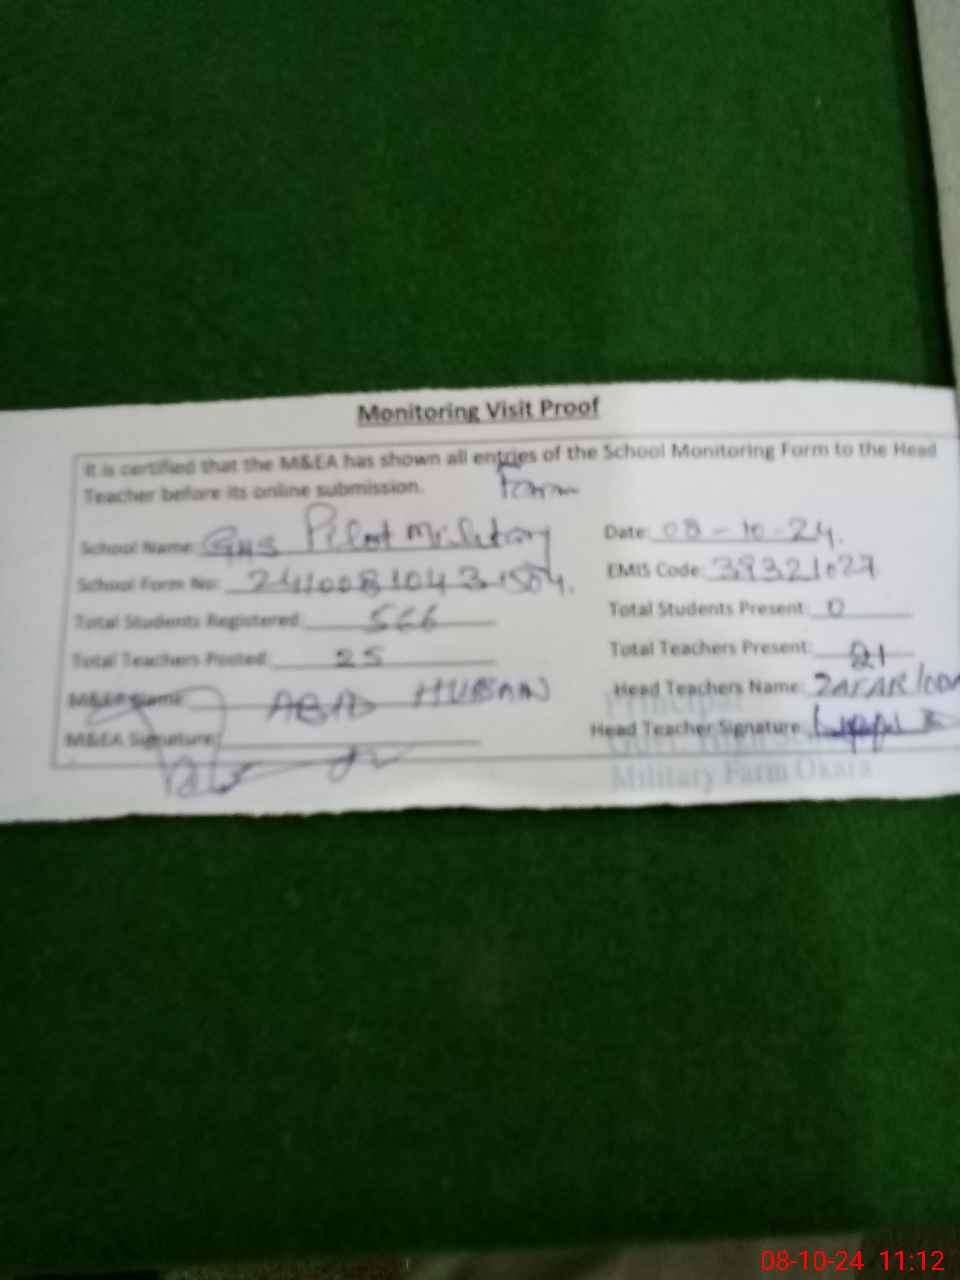 Monitoring Visit Proof
It is certified that the M&EA has shown all entries of the School Monitoring Form to the Head
Teacher before its online submission.
Farm
School Name: GHS Pilot Military
Date: 08-10-24.
School Form No:
EMIS Code: 39321027
Total Students Registered: 566
Total Students Present: 0
Total Teachers Posted: 25
Total Teachers Present: 21
M&EA Name:
Head Teachers Name: ZAFAR
M&EA Signature:
Head Teacher Signature:
Principal
Govt. High
Military Farm Okara
08-10-24 11:12